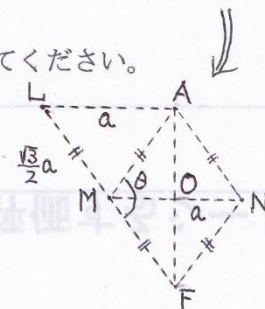 てください。
L
A
a
√3/2 a
M
θ
O
a
N
F